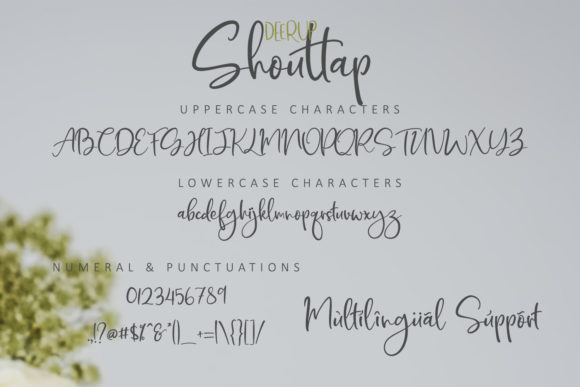 DEERUP
Shouttap
UPPERCASE CHARACTERS
ABCDEFGHIJKLMNOPQRSTUVWXYZ
LOWERCASE CHARACTERS
abcdefghijklmnopqrstuvwxyz
NUMERAL & PUNCTUATIONS
0123456789
.,!?@#$%^&*()_+=|\{}[]/
Mùltîlîngüäl Súppórt